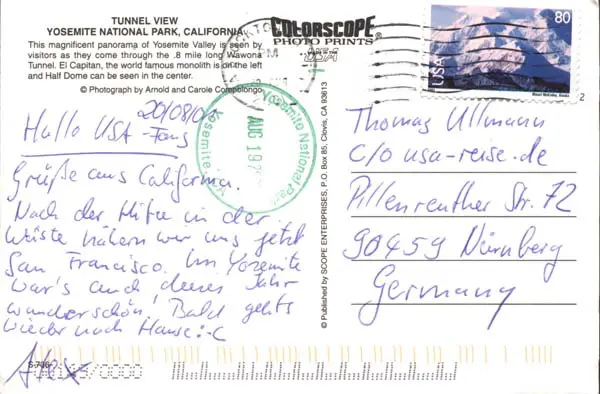 TUNNEL VIEW
YOSEMITE NATIONAL PARK, CALIFORNIA
This magnificent panorama of Yosemite Valley is seen by
visitors as they come through the .8 mile long Wawona
Tunnel. El Capitan, the world famous monolith is on the left
and Half Dome can be seen in the center.
© Photograph by Arnold and Carole Compolongo
COLORSCOPE
PHOTO PRINTS
USA
80
USA
Mount McKinley, Alaska
2
Yosemite National Park
AUG 19
20/08/0
Hallo USA-Fans
Grüße aus California.
Nach der Hitze in der
Wüste nähern wir uns jetzt
San Francisco. Im Yosemite
war's auch dieses Jahr
wunderschön! Bald gehts
wieder nach Hause :-C
Alex
© Published by SCOPE ENTERPRISES, P.O. Box 85, Clovis, CA 93613
Thomas Ullmann
c/o usa-reise.de
Pillenreuther Str. 72
90459 Nürnberg
Germany